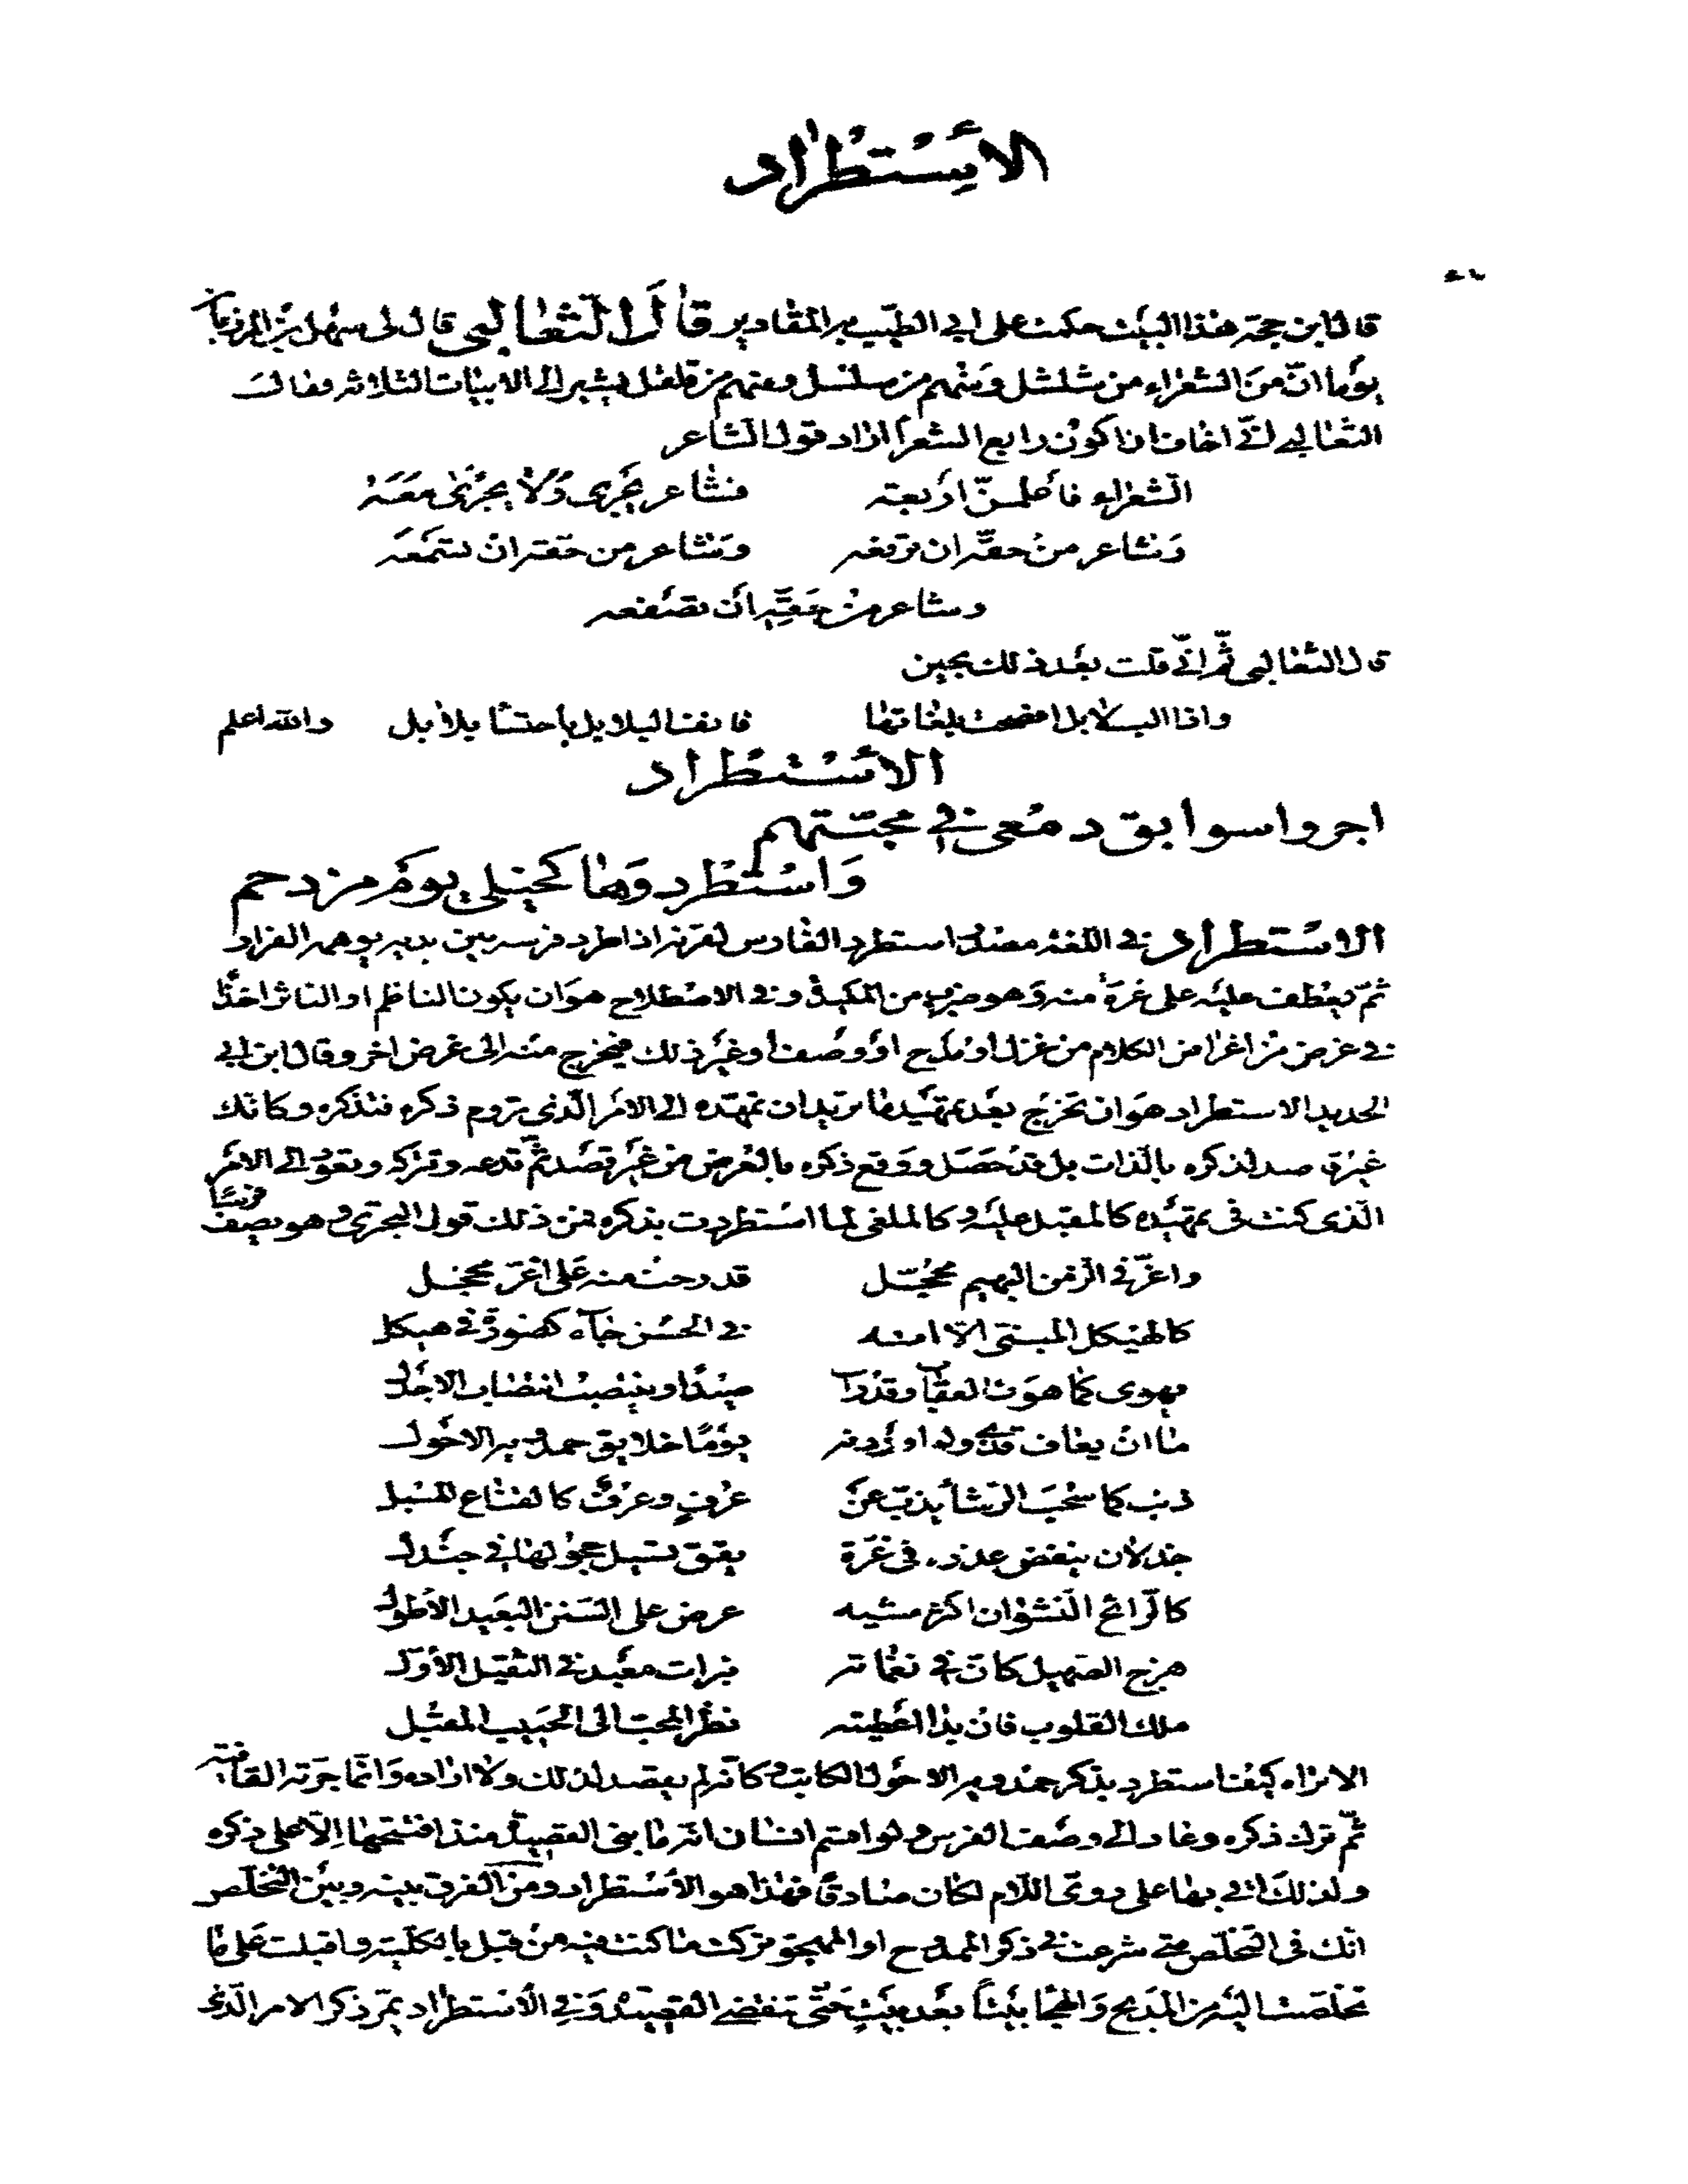 الاستطراد
قال ابن حجة هذا البيت حكمت على ابي الطيب به المقادير قال الثعالبي قال لى سهل بن المرزبان
يوما انّ من الشعراء من شلشل ومنهم من سلسل ومنهم من قلقل يشير الى الابيات الثلاثه فقالت
الثعالبي انّي اخاف ان اكون رابع الشعرآ اراد قول الشاعر
الشعراء فاعلمنّ اربعة فشاعر يجرى ولا يجرى معه
وشاعر من حقه ان ترفعه وشاعر من حقه ان تسمعه
وشاعر من حقه ان تصفعه
قال الثعالبي ثم انّي قلت بعد ذلك بحين
واذا البلابل افصحت بلغاتها فانف البلابل باحتسا بلابل والله اعلم
الاستطراد
اجروا سوابق دمعى فى محبتهم
واستطردوها كخيلى يوم مزدحم
الاستطراد في اللغة مصدر استطرد الفارس لقرنه اذا طرد فرسه بين يديه يوهمه الفرار
ثمّ يعطف عليه على غرة منه وهو ضرب من المكيدة وفى الاصطلاح هو ان يكون الناظم او الناثر اخذًا
في غرض من اغراض الكلام من غزل او مدح او وصف او غير ذلك فيخرج منه الى غرض اخر وقال ابن ابي
الحديد الاستطراد هو ان تخرج بعد تمهيد ما تريد ان تمهده الى الامر الّذى تروم ذكره فتذكره وكانك
غير قاصد لذكره بالذات بل قد حصل ووقع ذكره بالعرض من غير قصد ثم تدعه وتتركه وتعود الى الامر
الّذى كنت فى تمهيده كالمقبل عليه وكالملغى لما استطردت بذكره فمن ذلك قول البحترى وهو يصف فرسًا
واغرّ في الزمن البهيم محجّل قد رحت منه على اغرّ محجل
كالهيكل المبنى الّا انه في الحسن جآء كصورة في هيكل
يهوى كما هوت العقاب وقد رات صيدًا وينتصب انتصاب الاجدل
ما ان يعاف قذى ولو اوردته يومًا خلايق حمدويه الاحول
ذنب كما سحب الرشا يذب عن عرف وعرف كالقناع المسبل
جذلان ينفض عذرة فى غرّة يقق تسيل حجولها في جندل
كالرائح النشوان اكثر مشيه عرض على السنن البعيد الاطول
هزج الصهيل كان في نغماته نبرات معبد في الثقيل الأول
ملك القلوب فان بدا اعطيته نظر المحب الى الحبيب المقبل
الا تراه كيف استطرد بذكر حمدويه الاحول الكاتب وكانه لم يقصد لذلك ولا اراده وانّما جرّته القافية
ثمّ ترك ذكره وعاد الى وصف الفرس ولو اقسم انسان انه ما بنى القصيدة منذ افتتحها الّا على ذكره
ولذلك اتى بها على روى اللام لكان صادقًا فهذا هو الاستطراد ومن الفرق بينه وبين التخلص
انّك فى التخلص متى شرعت في ذكر الممدوح او المهجو تركت ما كنت فيه من قبل بالكلّية واقبلت على ما
تخلصت اليه من المديح والهجا بيتاً بعد بيت حتّى تنقضى القصيدة وفي الاستطراد تمرّ ذكر الامر الّذى